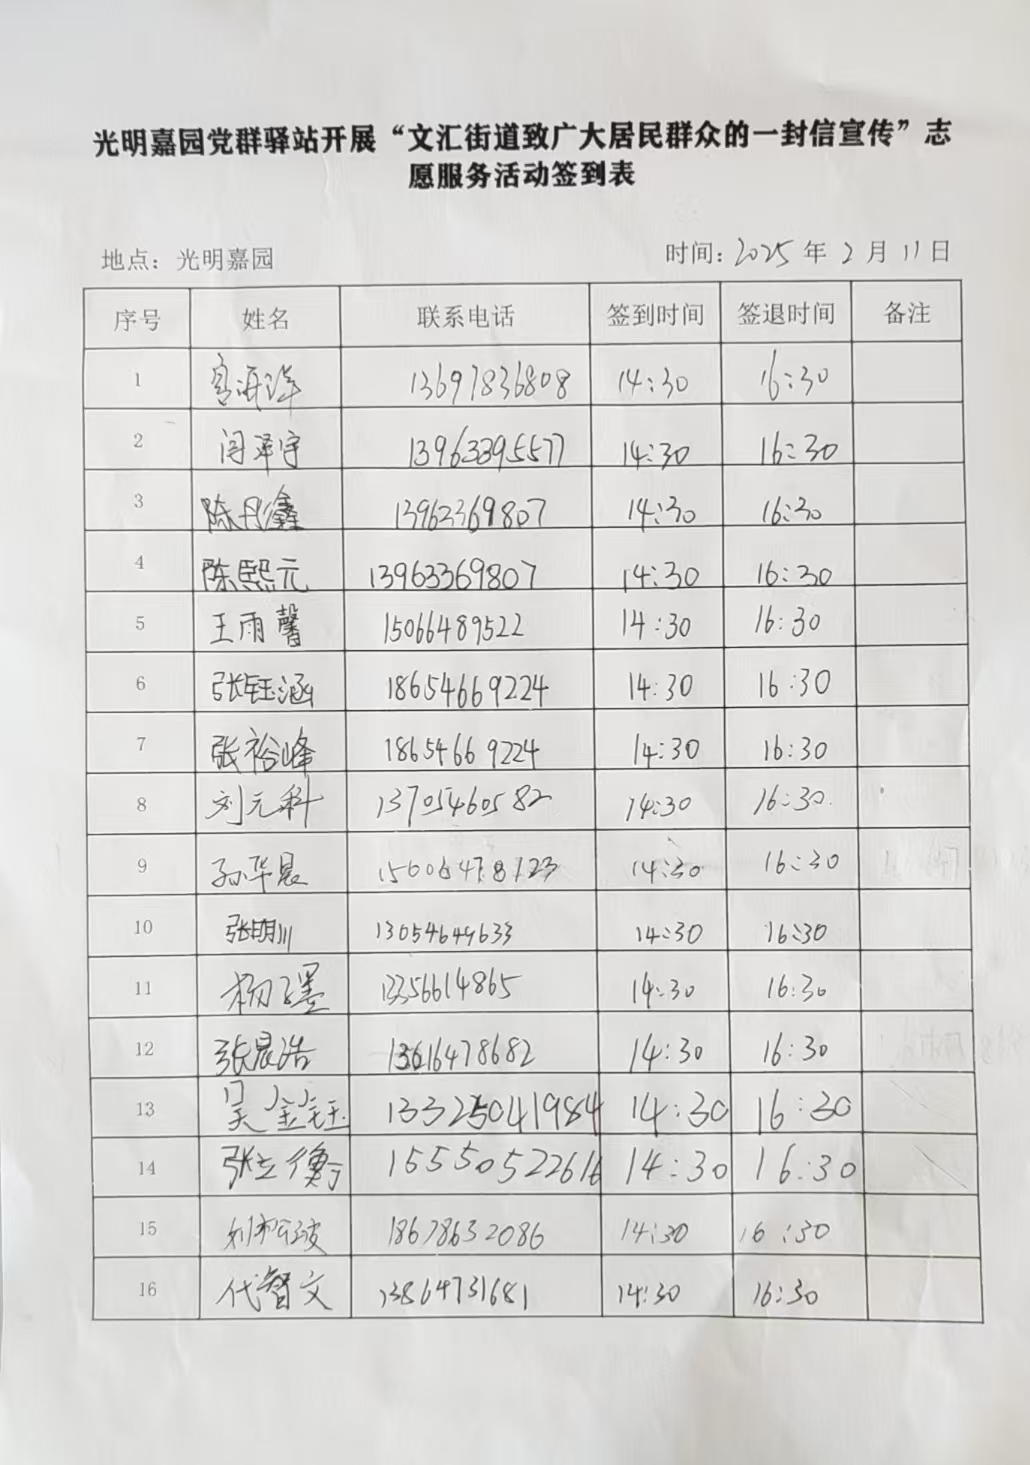 光明嘉园党群驿站开展“文汇街道致广大居民群众的一封信宣传”志
愿服务活动签到表
地点：光明嘉园 时间：2025年2月11日
序号 姓名 联系电话 签到时间 签退时间 备注
1 13697836808 14:30 16:30
2 闫泽宇 13963395577 14:30 16:30
3 陈彤鑫 13963369807 14:30 16:30
4 陈熙元 13963369807 14:30 16:30
5 王雨馨 15066489522 14:30 16:30
6 张钰涵 18654669224 14:30 16:30
7 张裕峰 18654669224 14:30 16:30
8 刘元科 13705460582 14:30 16:30
9 孙华晨 14:30 16:30
10 张明川 13054649633 14:30 16:30
11 杨子墨 13356614865 14:30 16:30
12 张晨浩 13616478682 14:30 16:30
13 吴金钰 13325041984 14:30 16:30
14 张立衡 15550522616 14:30 16:30
15 18678632086 14:30 16:30
16 代智文 13864731681 14:30 16:30